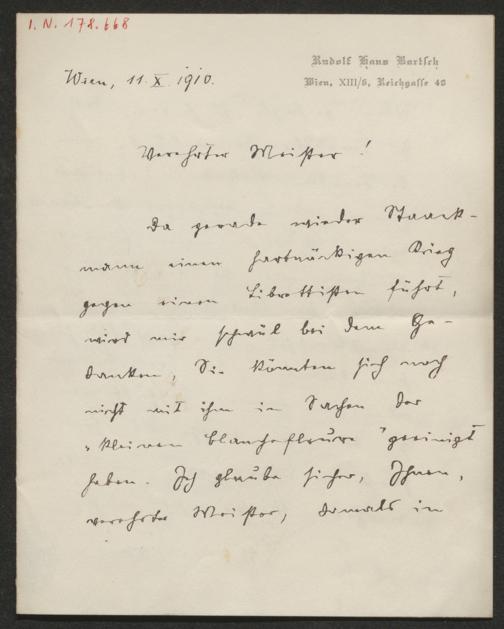 I. N. 178.668
Rudolf Hans Bartsch
Wien, XIII/6, Reichgasse 40
Wien, 11. X. 1910.
Verehrter Meister!
Da gerade wieder Staack-
mann einen hartnäckigen Krieg
gegen einen Librettisten führt,
wird mir schwül bei dem Ge-
danken, Sie könnten sich noch
nicht mit ihm in Sachen der
"kleinen Blanchefleure" geeinigt
haben. Ich glaube sicher, Ihnen,
verehrter Meister, damals in